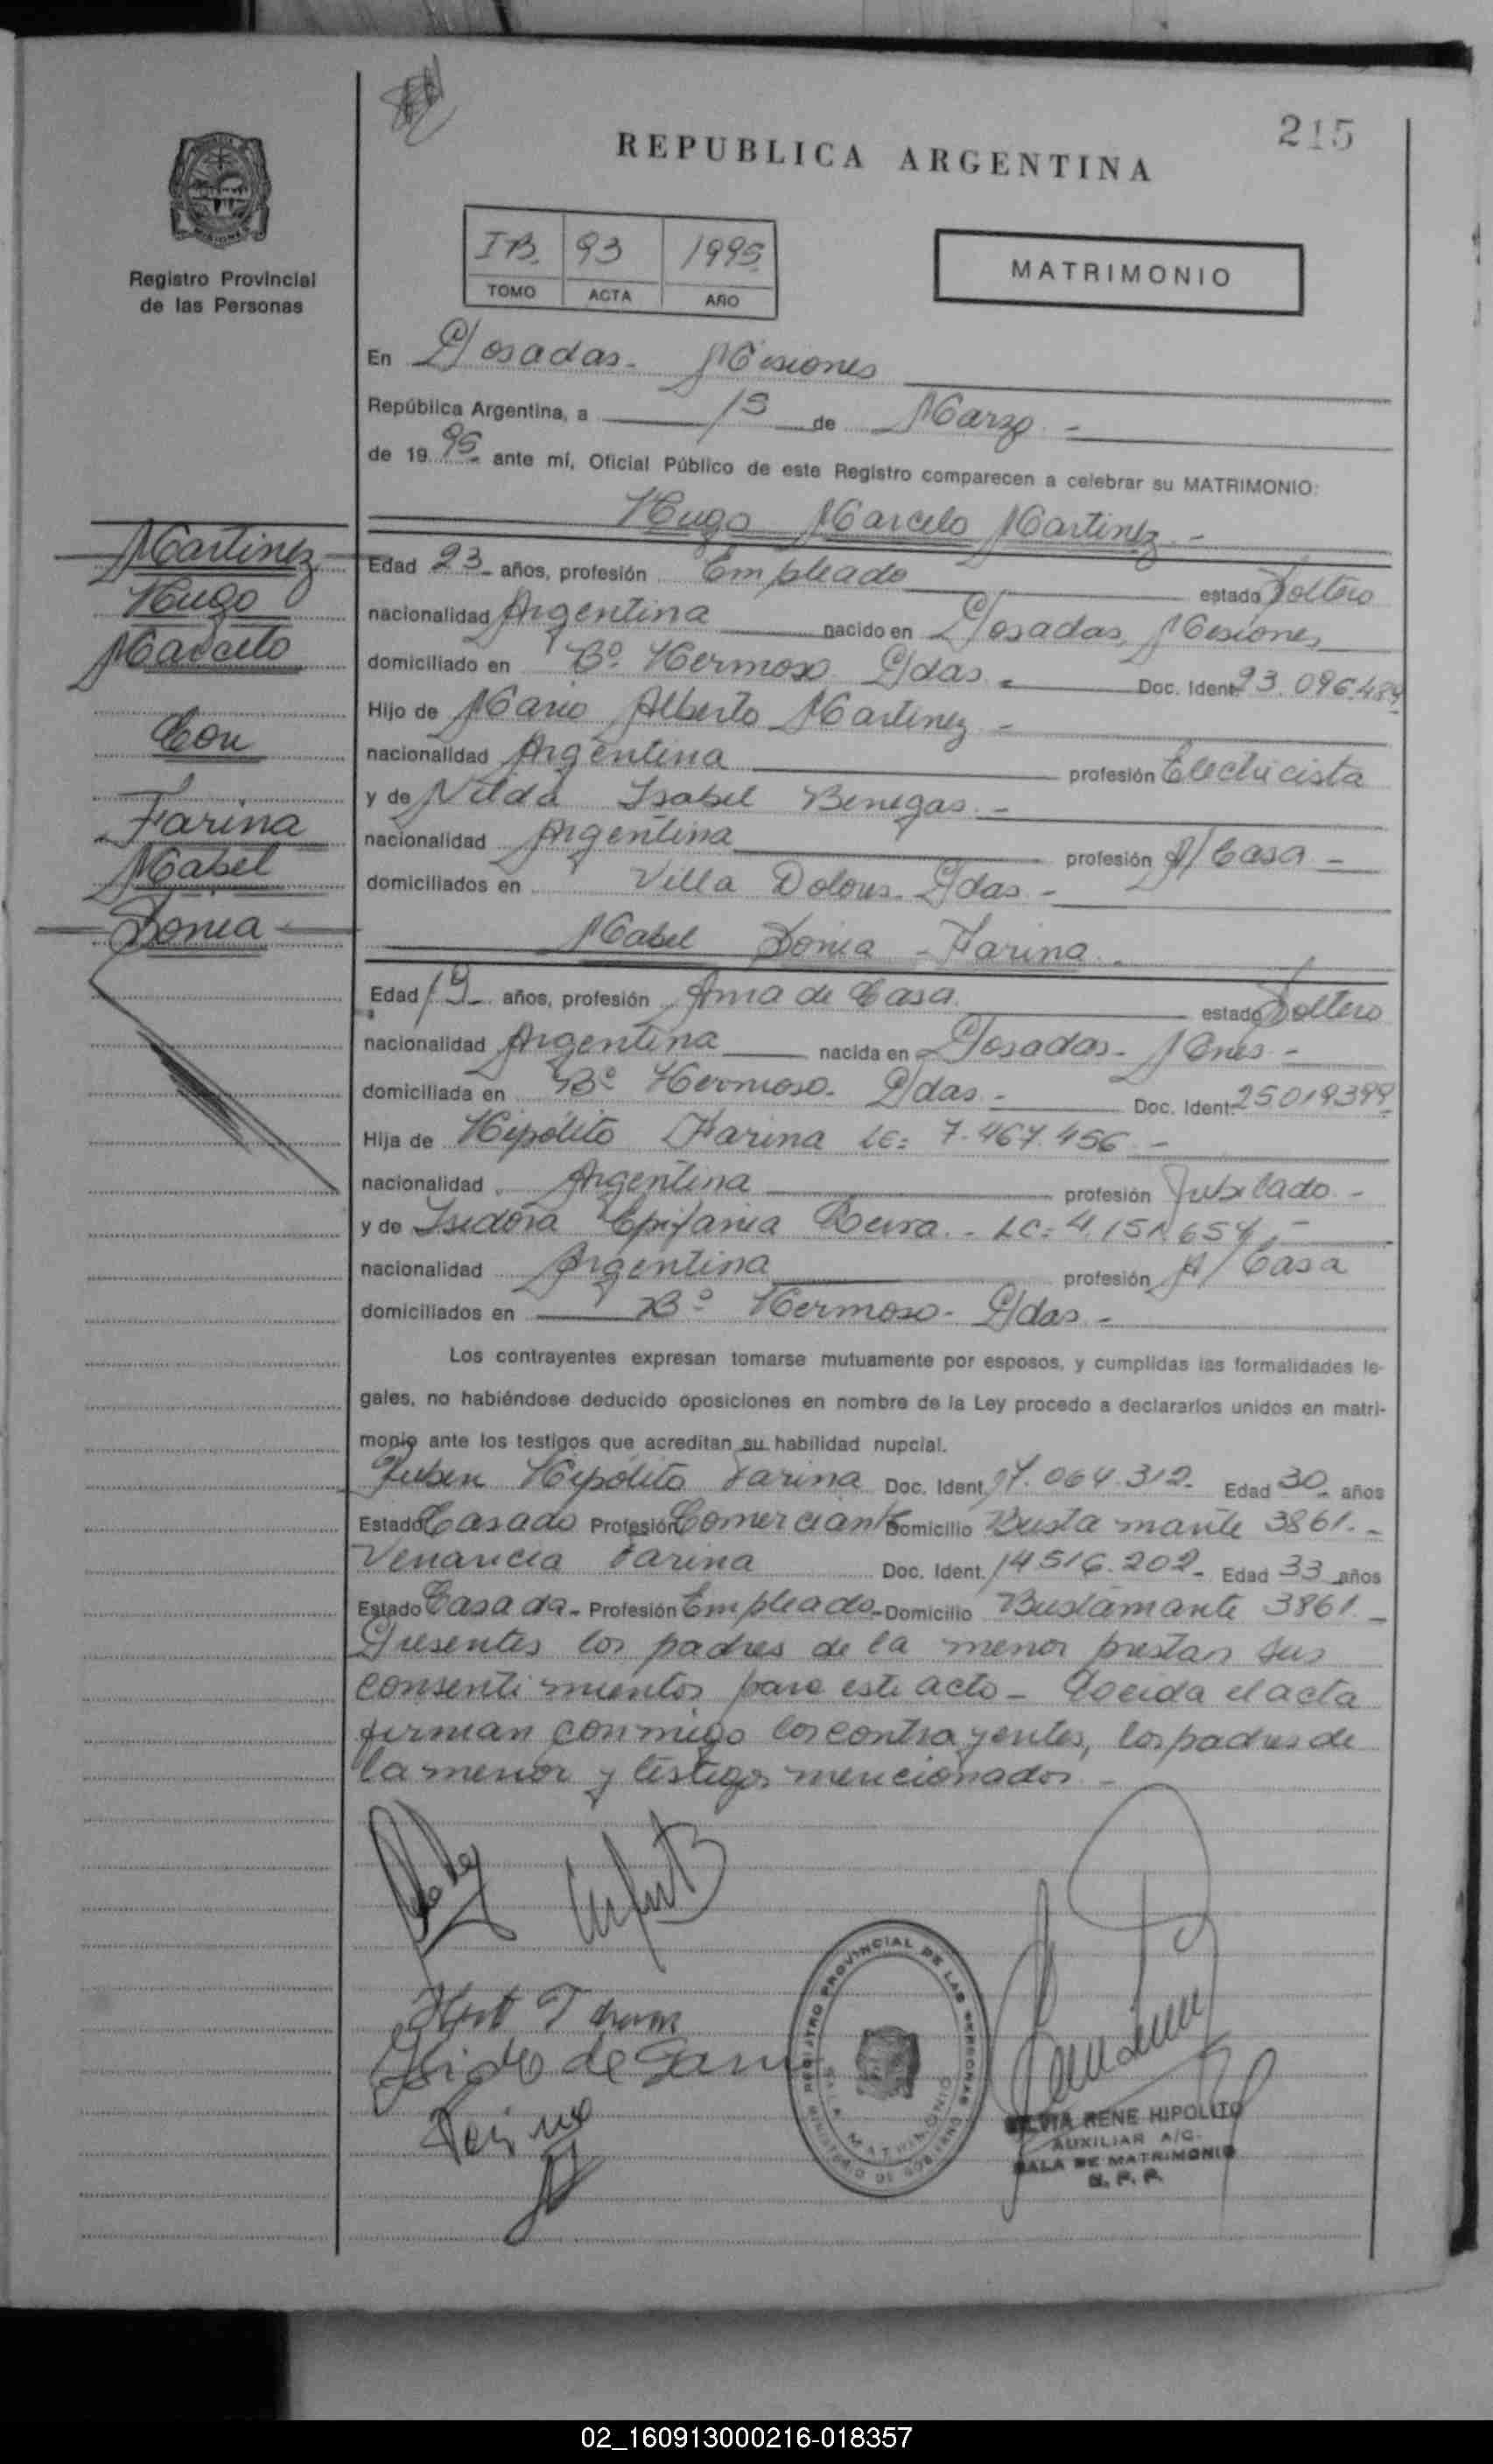 215
REPUBLICA ARGENTINA
Registro Provincial
de las Personas
IB. 93 1995
TOMO ACTA AÑO
MATRIMONIO
En Posadas - Misiones
República Argentina, a de Marzo -
de 1995 ante mí, Oficial Público de este Registro comparecen a celebrar su MATRIMONIO:
Hugo Marcelo Martinez -
Martinez
Hugo
Marcelo
Con
Farina
Mabel
Sonia
Edad 23 - años, profesión Empleado estado Soltero
nacionalidad Argentina nacido en Posadas, Misiones
domiciliado en Bº Hermoso Pdas - Doc. Ident. 23.096.484
Hijo de Mario Alberto Martinez -
nacionalidad Argentina profesión Electricista
y de Nilda Isabel Benegas. -
nacionalidad Argentina profesión A/Casa -
domiciliados en Villa Dolores. Pdas -
Mabel Sonia - Farina.
Edad 19 - años, profesión Ama de Casa. estado Soltero
nacionalidad Argentina nacida en Posadas - Mnes -
domiciliada en Bº Hermoso. Pdas - Doc. Ident. 25019399
Hija de Hipólito Farina LE: 7.467.456 -
nacionalidad Argentina profesión Jubilado -
y de Isidora Epifania - LC: -
nacionalidad Argentina profesión A/Casa
domiciliados en Bº Hermoso - Pdas -
Los contrayentes expresan tomarse mutuamente por esposos, y cumplidas las formalidades le-
gales, no habiéndose deducido oposiciones en nombre de la Ley procedo a declararlos unidos en matri-
monio ante los testigos que acreditan su habilidad nupcial.
Ruben Hipólito Farina Doc. Ident. 17.064.312 - Edad 30 - años
Estado Casado Profesión Comerciante Domicilio Bustamante 3861. -
Venancia Farina Doc. Ident. 14516.202 - Edad 33 años
Estado Casada - Profesión Empleado - Domicilio Bustamante 3861. -
Presentes los padres de la menor prestan sus
consentimientos para este acto - Leeida el acta
firman conmigo los contrayentes, los padres de
la menor y testigos mencionados -
REGISTRO PROVINCIAL DE LAS PERSONAS
MINISTERIO DE GOBIERNO
SALA MATRIMONIO
SILVIA RENE HIPOLITO
AUXILIAR A/C.
SALA DE MATRIMONIO
R. P. P.
02_160913000216-018357